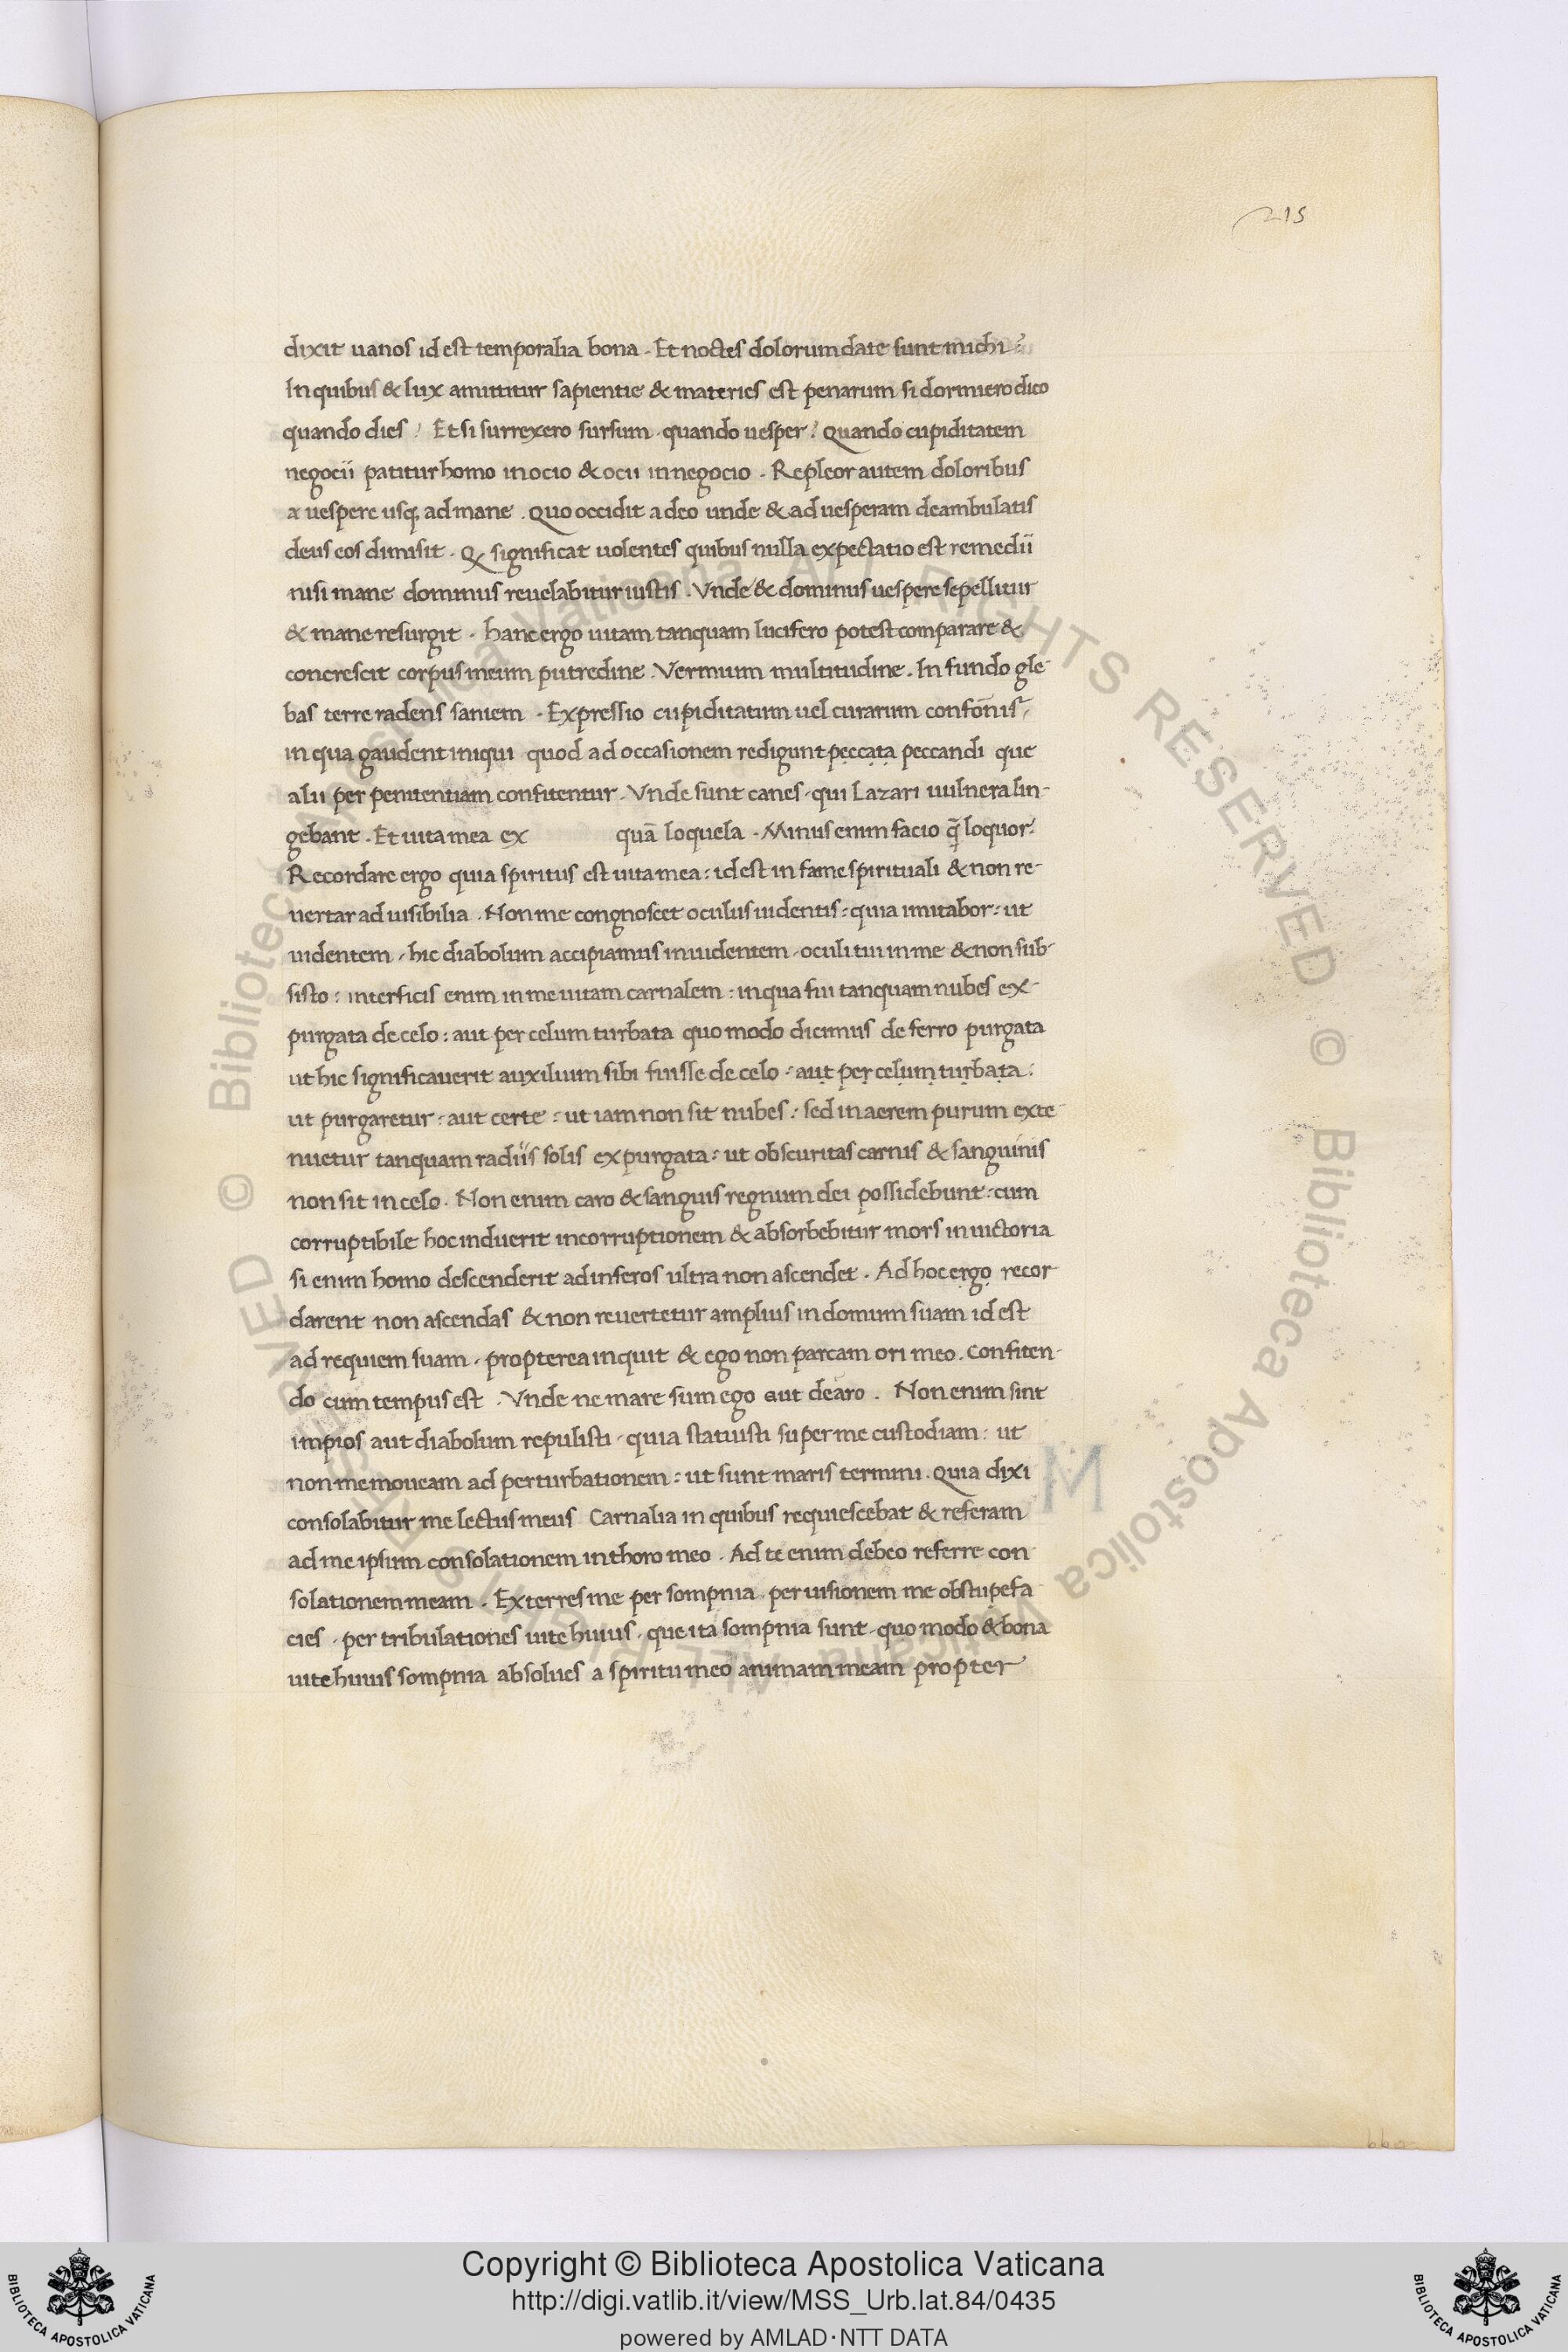 215
dixit uanos id est temporalia bona . Et noctes dolorum date sunt michi :
In quibus & lux amittitur sapientie & materies est penarum si dormiero dico
quando dies ? Et si surrexero sursum . quando uesper ? Quando cupiditatem
negocii patitur homo in ocio & ocii in negocio . Repleor autem doloribus
a uespere usq; ad mane . Quo occidit a deo unde & ad uesperam deambulatis
deus eos dimisit . Qđ significat uolentes quibus nulla expectatio est remedii
nisi mane dominus reuelabitur iustis . Vnde & dominus uespere sepellitur
& mane resurgit . hanc ergo uitam tanquam lucifero potest comparare &
concrescit corpus meum putredine . Vermium multitudine . In fundo gle-
bas terre radens saniem . Expressio cupiditatum uel curarum
in qua gaudent iniqui quod ad occasionem redigunt peccata peccandi que
alii per penitentiam confitentur . Vnde sunt canes . qui Lazari uulnera lin-
gebant . Et uita mea ex quā loquela . Minus enim facio q̄ loquor :
Recordare ergo quia spiritus est uita mea : id est in fame spirituali & non re-
uertar ad uisibilia . Non me congnoscet oculus uidentis : quia imitabor : ut
uidentem . hic diabolum accipiamus inuidentem . oculi tui in me & non sub-
sisto : interficis enim in me uitam carnalem : in qua fui tanquam nubes ex-
purgata de celo : aut per celum turbata quo modo dicimus de ferro purgata
ut hic significauerit auxilium sibi fuisse de celo : aut per celum turbata :
ut purgaretur : aut certe : ut iam non sit nubes : sed in aerem purum exte-
nuetur tanquam radiis solis expurgata : ut obscuritas carnis & sanguinis
non sit in celo . Non enim caro & sanguis regnum dei possidebunt : cum
corruptibile hoc induerit incorruptionem & absorbebitur mors in uictoria
si enim homo descenderit ad inferos ultra non ascendet . Ad hoc ergo recor-
darent non ascendas & non reuertetur amplius in domum suam id est
ad requiem suam . propterea inquit & ego non parcam ori meo . Confiten-
do cum tempus est . Vnde ne mare sum ego aut dearo . Non enim sint
impios aut diabolum repulisti . quia statuisti super me custodiam : ut
non me moueam ad perturbationem : ut sunt maris termini . Quia dixi
consolabitur me lectus meus Carnalia in quibus requiescebat & referam
ad me ipsum consolationem in thoro meo . Ad te enim debeo referre con-
solationem meam . Exterres me per sompnia . per uisionem me obstupefa-
cies . per tribulationes uite huius . que ita sompnia sunt . quo modo & bona
uite huius sompnia absolues a spiritu meo animam meam propter
Copyright © Biblioteca Apostolica Vaticana
http://digi.vatlib.it/view/MSS_Urb.lat.84/0435
powered by AMLAD·NTT DATA